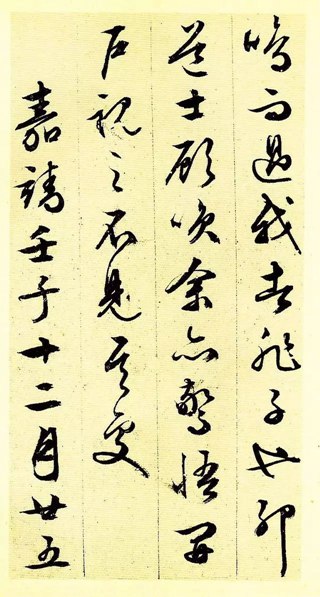 鳴而過我者非子也耶
道士顧咲余亦驚悟開
户視之不見其處
嘉靖壬子十二月廿五